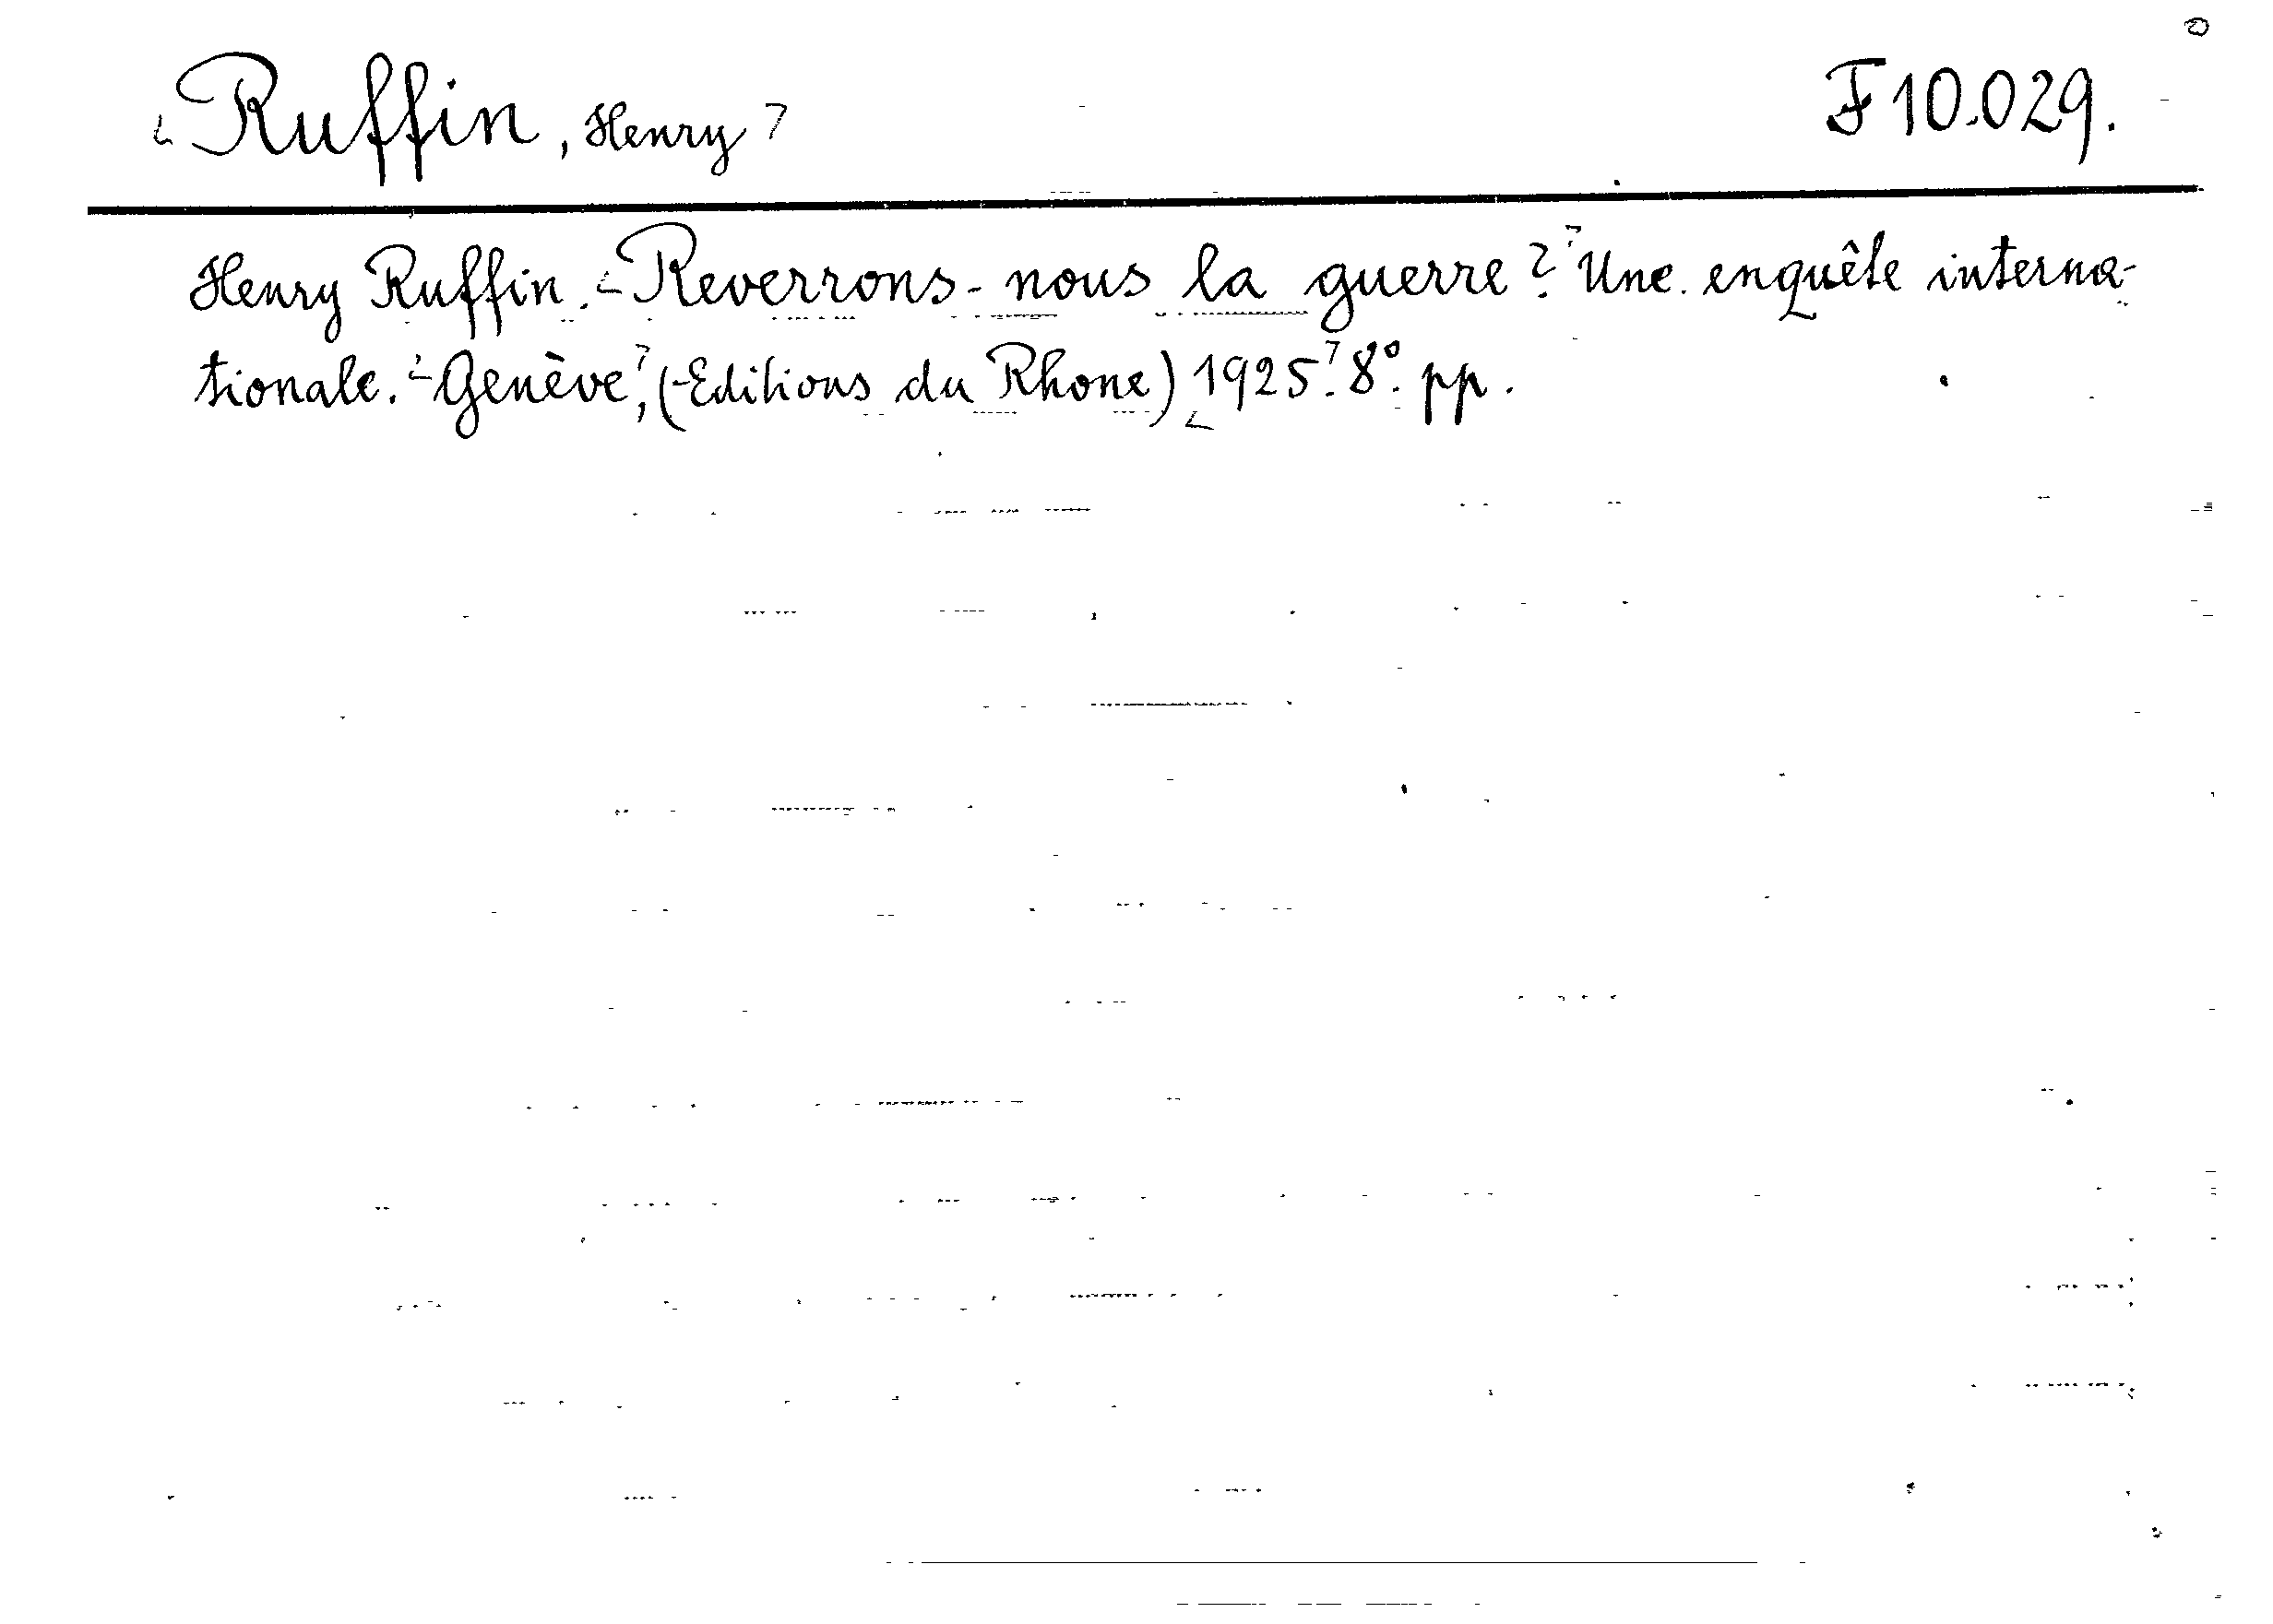 Ruffin, Henry F 10.029.
Henry Ruffin. - Reverrons-nous la guerre? Une enquête interna-
tionale. - Genève, (Editions du Rhone) 1925. 8°. pp.